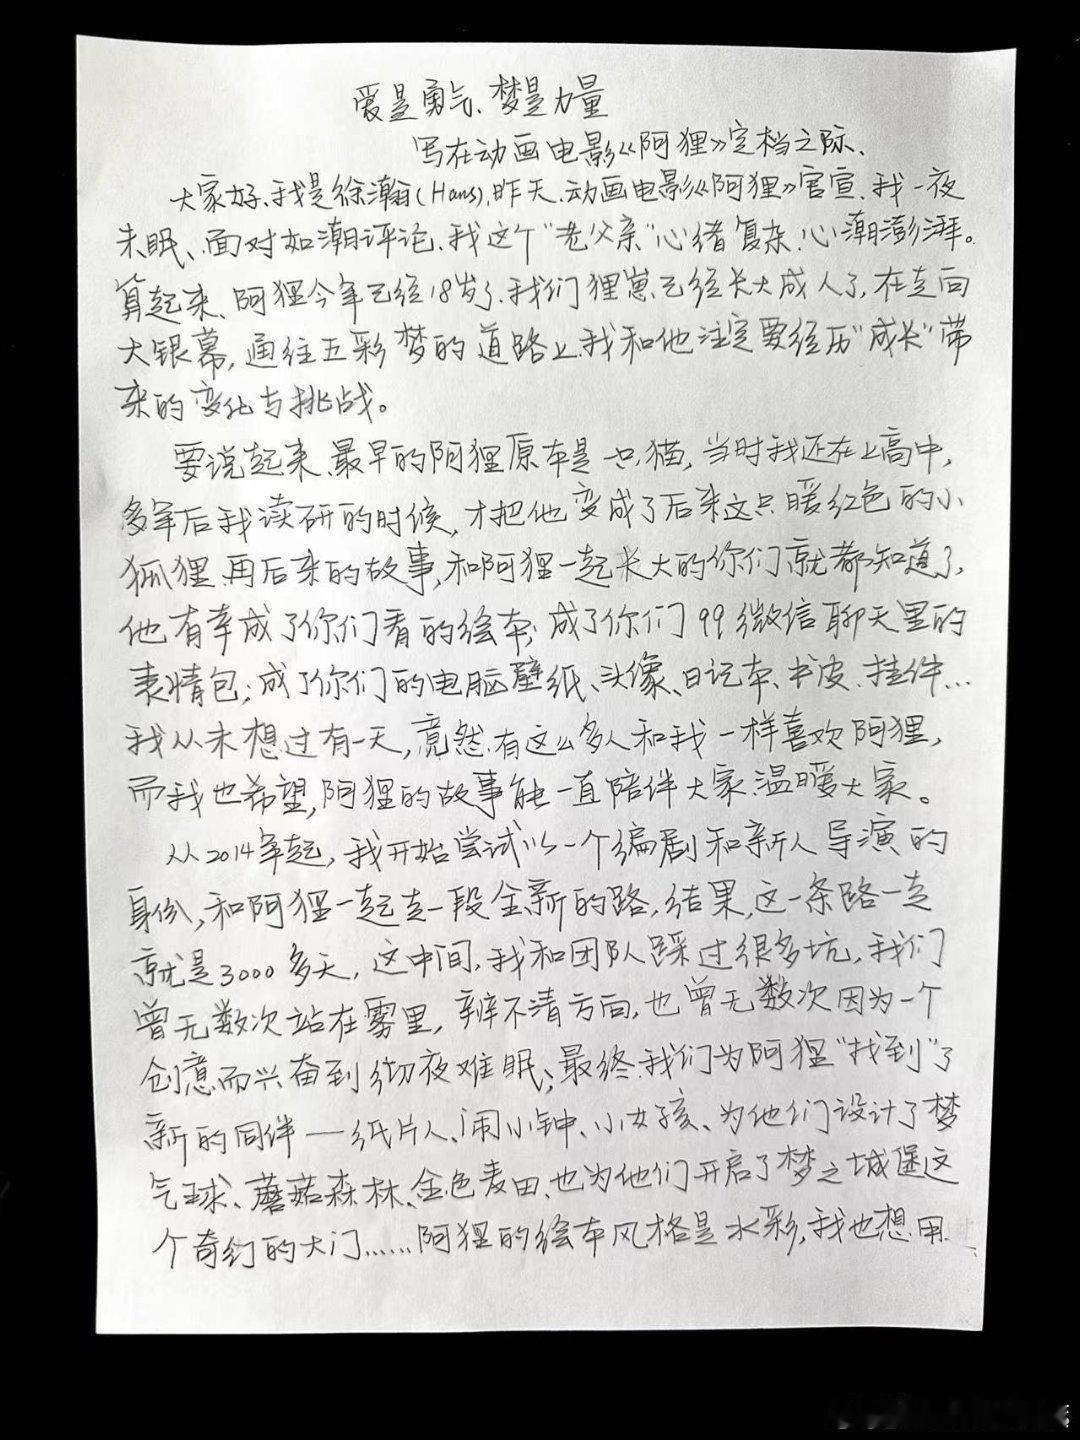 爱是勇气、梦是力量
写在动画电影《阿狸》定档之际、
大家好、我是徐瀚(Hans)，昨天、动画电影《阿狸》官宣、我一夜
未眠、面对如潮评论、我这个"老父亲"心绪复杂、心潮澎湃。
算起来、阿狸今年已经18岁了、我们狸崽已经长大成人了，在走向
大银幕，通往五彩梦的道路上、我和他注定要经历"成长"带
来的变化与挑战。
要说起来、最早的阿狸原本是一只猫，当时我还在上高中，
多年后我读研的时候，才把他变成了后来这只暖红色的小
狐狸、再后来的故事，和阿狸一起长大的你们就都知道了，
他有幸成了你们看的绘本；成了你们QQ微信聊天里的
表情包；成了你们的电脑壁纸、头像、日记本、书皮、挂件…
我从未想过有一天，竟然有这么多人和我一样喜欢阿狸，
而我也希望，阿狸的故事能一直陪伴大家、温暖大家。
从2014年起，我开始尝试以一个编剧和新人导演的
身份，和阿狸一起走一段全新的路，结果，这一条路一走
就是3000多天，这中间，我和团队踩过很多坑，我们
曾无数次站在雾里，辨不清方向，也曾无数次因为一个
创意而兴奋到彻夜难眠；最终、我们为阿狸"找到"了
新的同伴——纸片人、闹小钟、小女孩、为他们设计了梦
气球、蘑菇森林、金色麦田、也为他们开启了梦之城堡这
个奇幻的大门……阿狸的绘本风格是水彩，我也想用